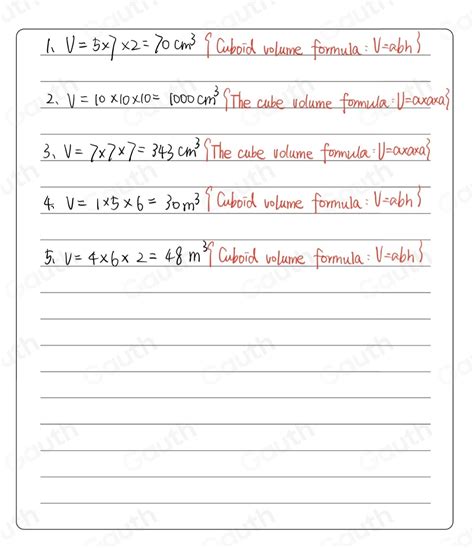 1、V = 5×7×2 = 70 cm³ {Cuboid volume formula : V=abh}
2、V = 10×10×10 = 1000 cm³ {The cube volume formula : V=a×a×a}
3、V = 7×7×7 = 343 cm³ {The cube volume formula : V=a×a×a}
4、V = 1×5×6 = 30 m³ {Cuboid volume formula : V=abh}
5、V = 4×6×2 = 48 m³ {Cuboid volume formula : V=abh}
Gauth